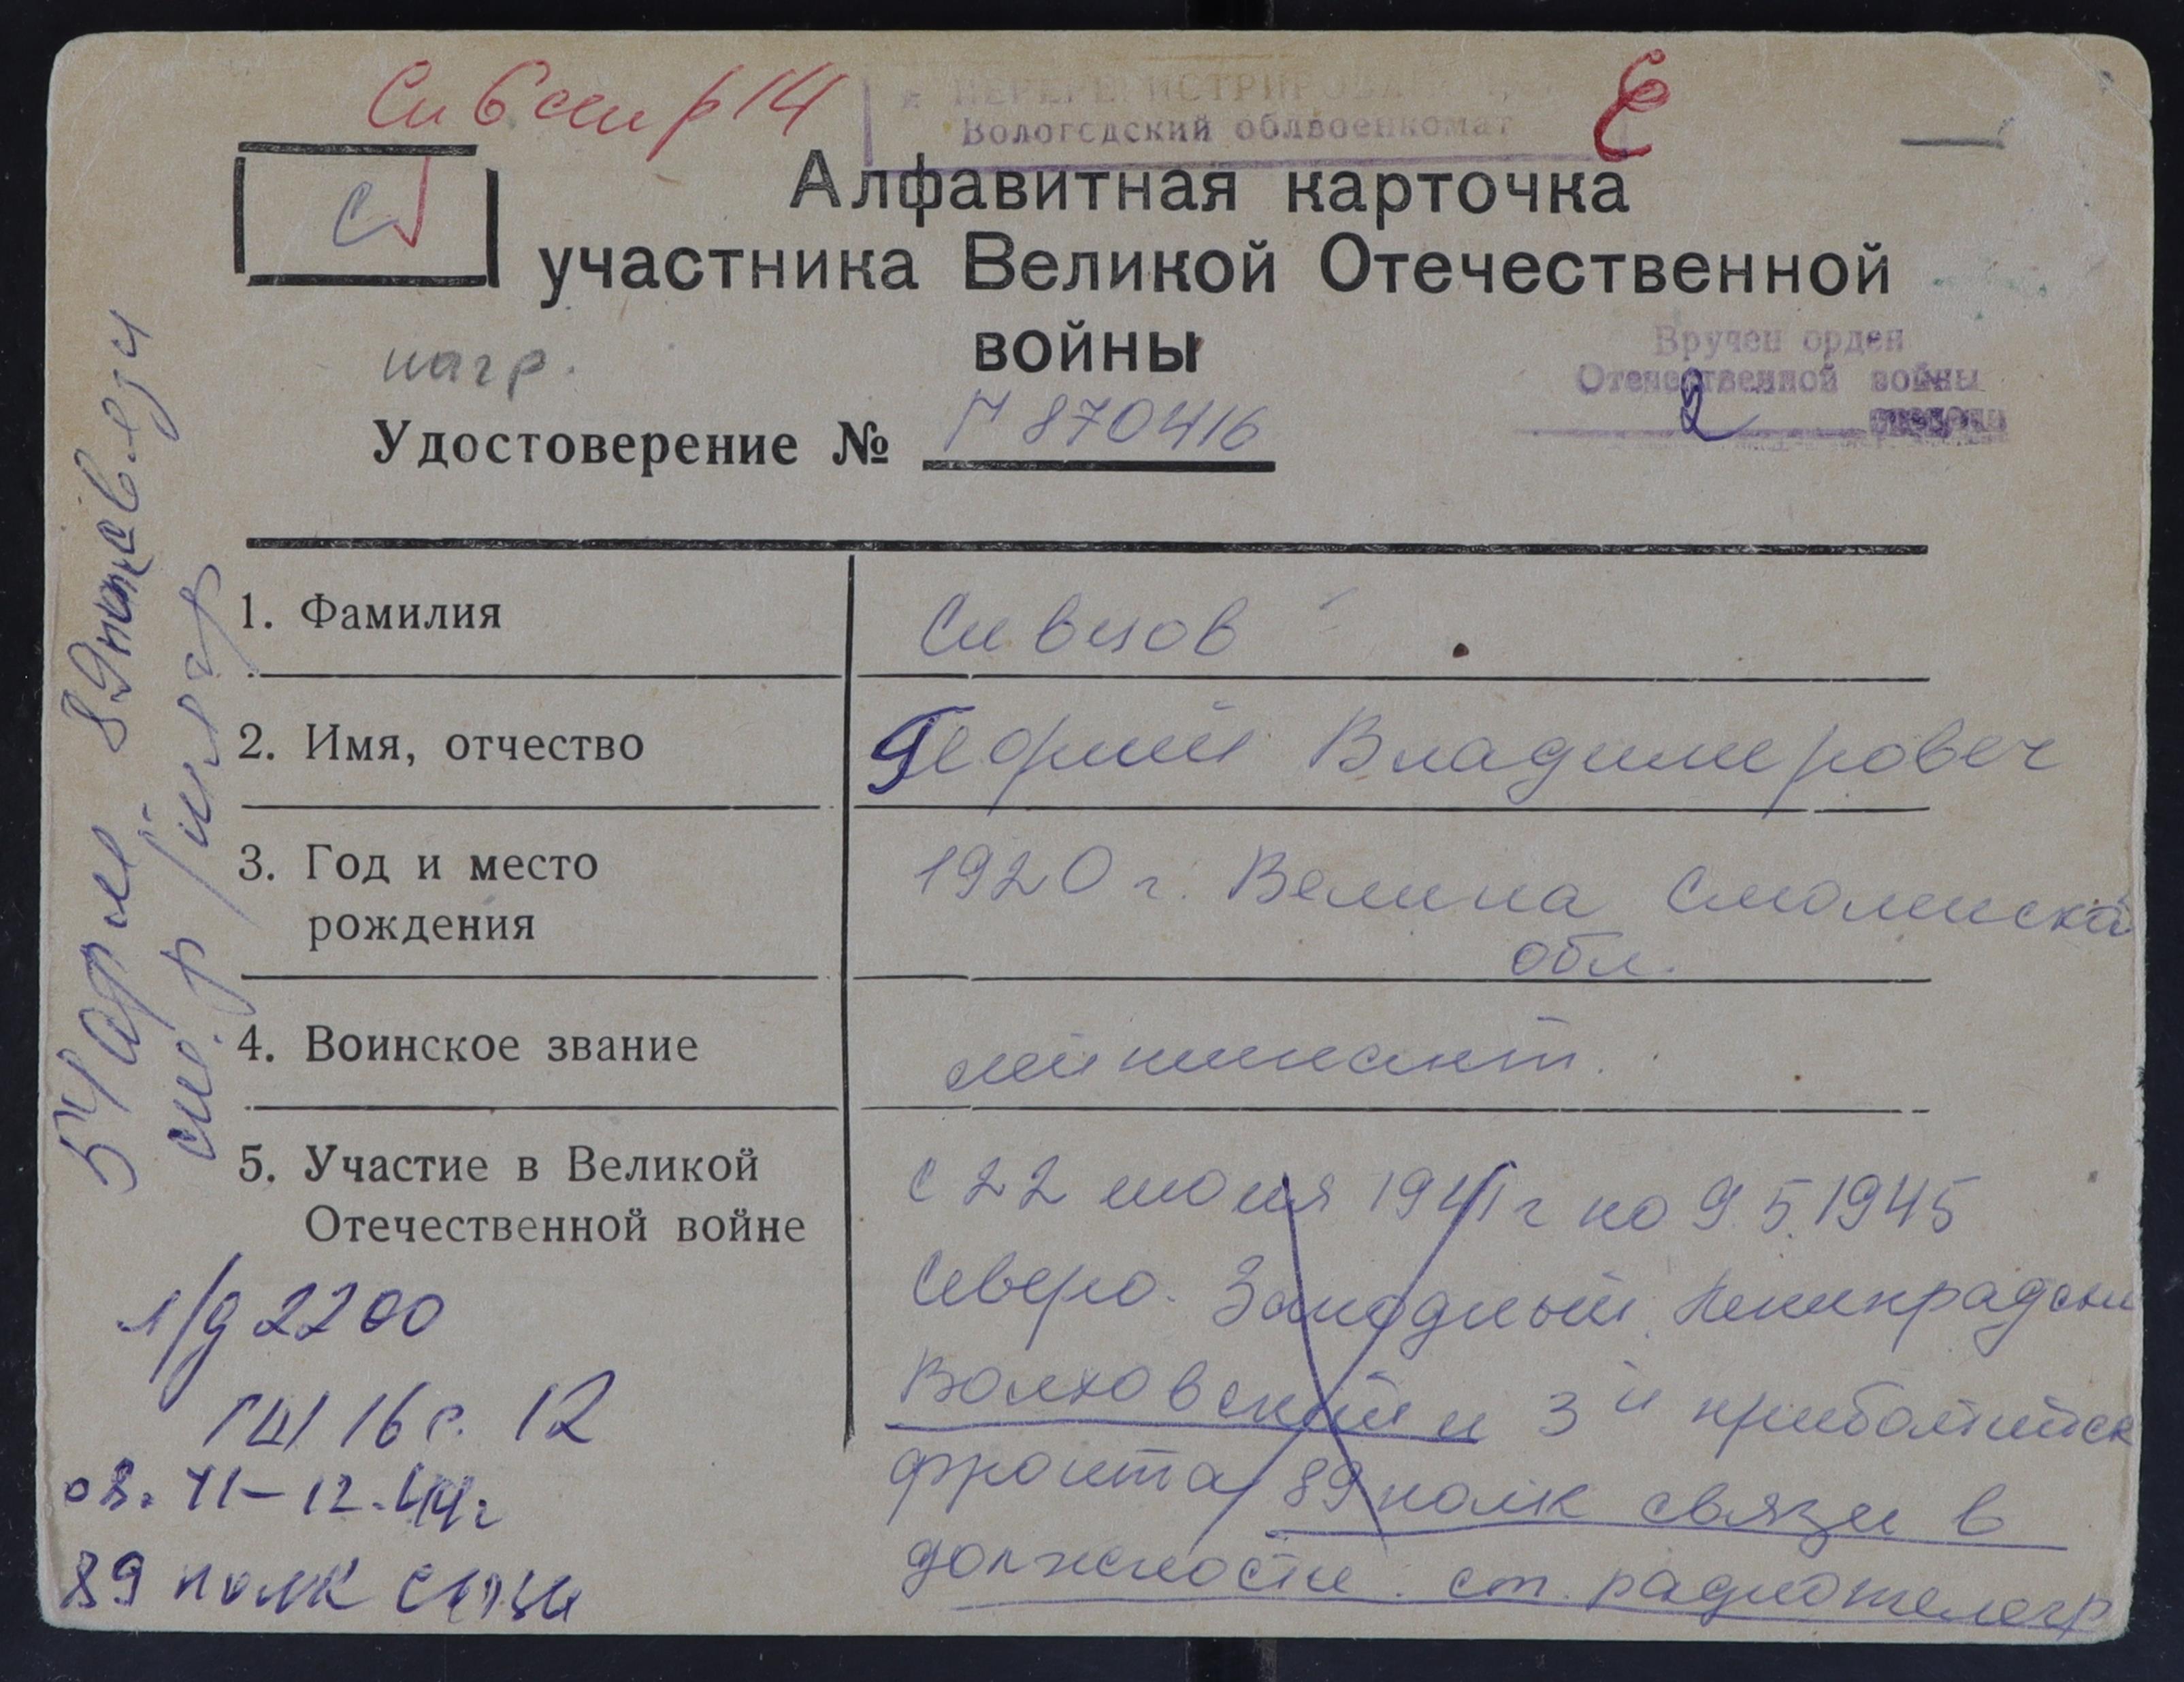 ПЕРЕРЕГИСТРИРОВАН
Вологодский облвоенкомат
С
Алфавитная карточка
участника Великой Отечественной
войны
нагр.
Вручен орден
Отечественной войны
2 степени
Удостоверение № Г 870416
1. Фамилия
Сивцов
2. Имя, отчество
Владимирович
3. Год и место рождения
1920 г. Смоленска
обл.
4. Воинское звание
лейтенант.
5. Участие в Великой Отечественной войне
с 22 июня 1941 г по 9.5.1945
Северо. Западный Ленинрадски
Волховский и 3й прибалтийск
фронта 89 полк связи в
должности ст. радиотелегр
54 арм. 89 полк связи
л/д 2200
12
41-12.44г
89 полк связи